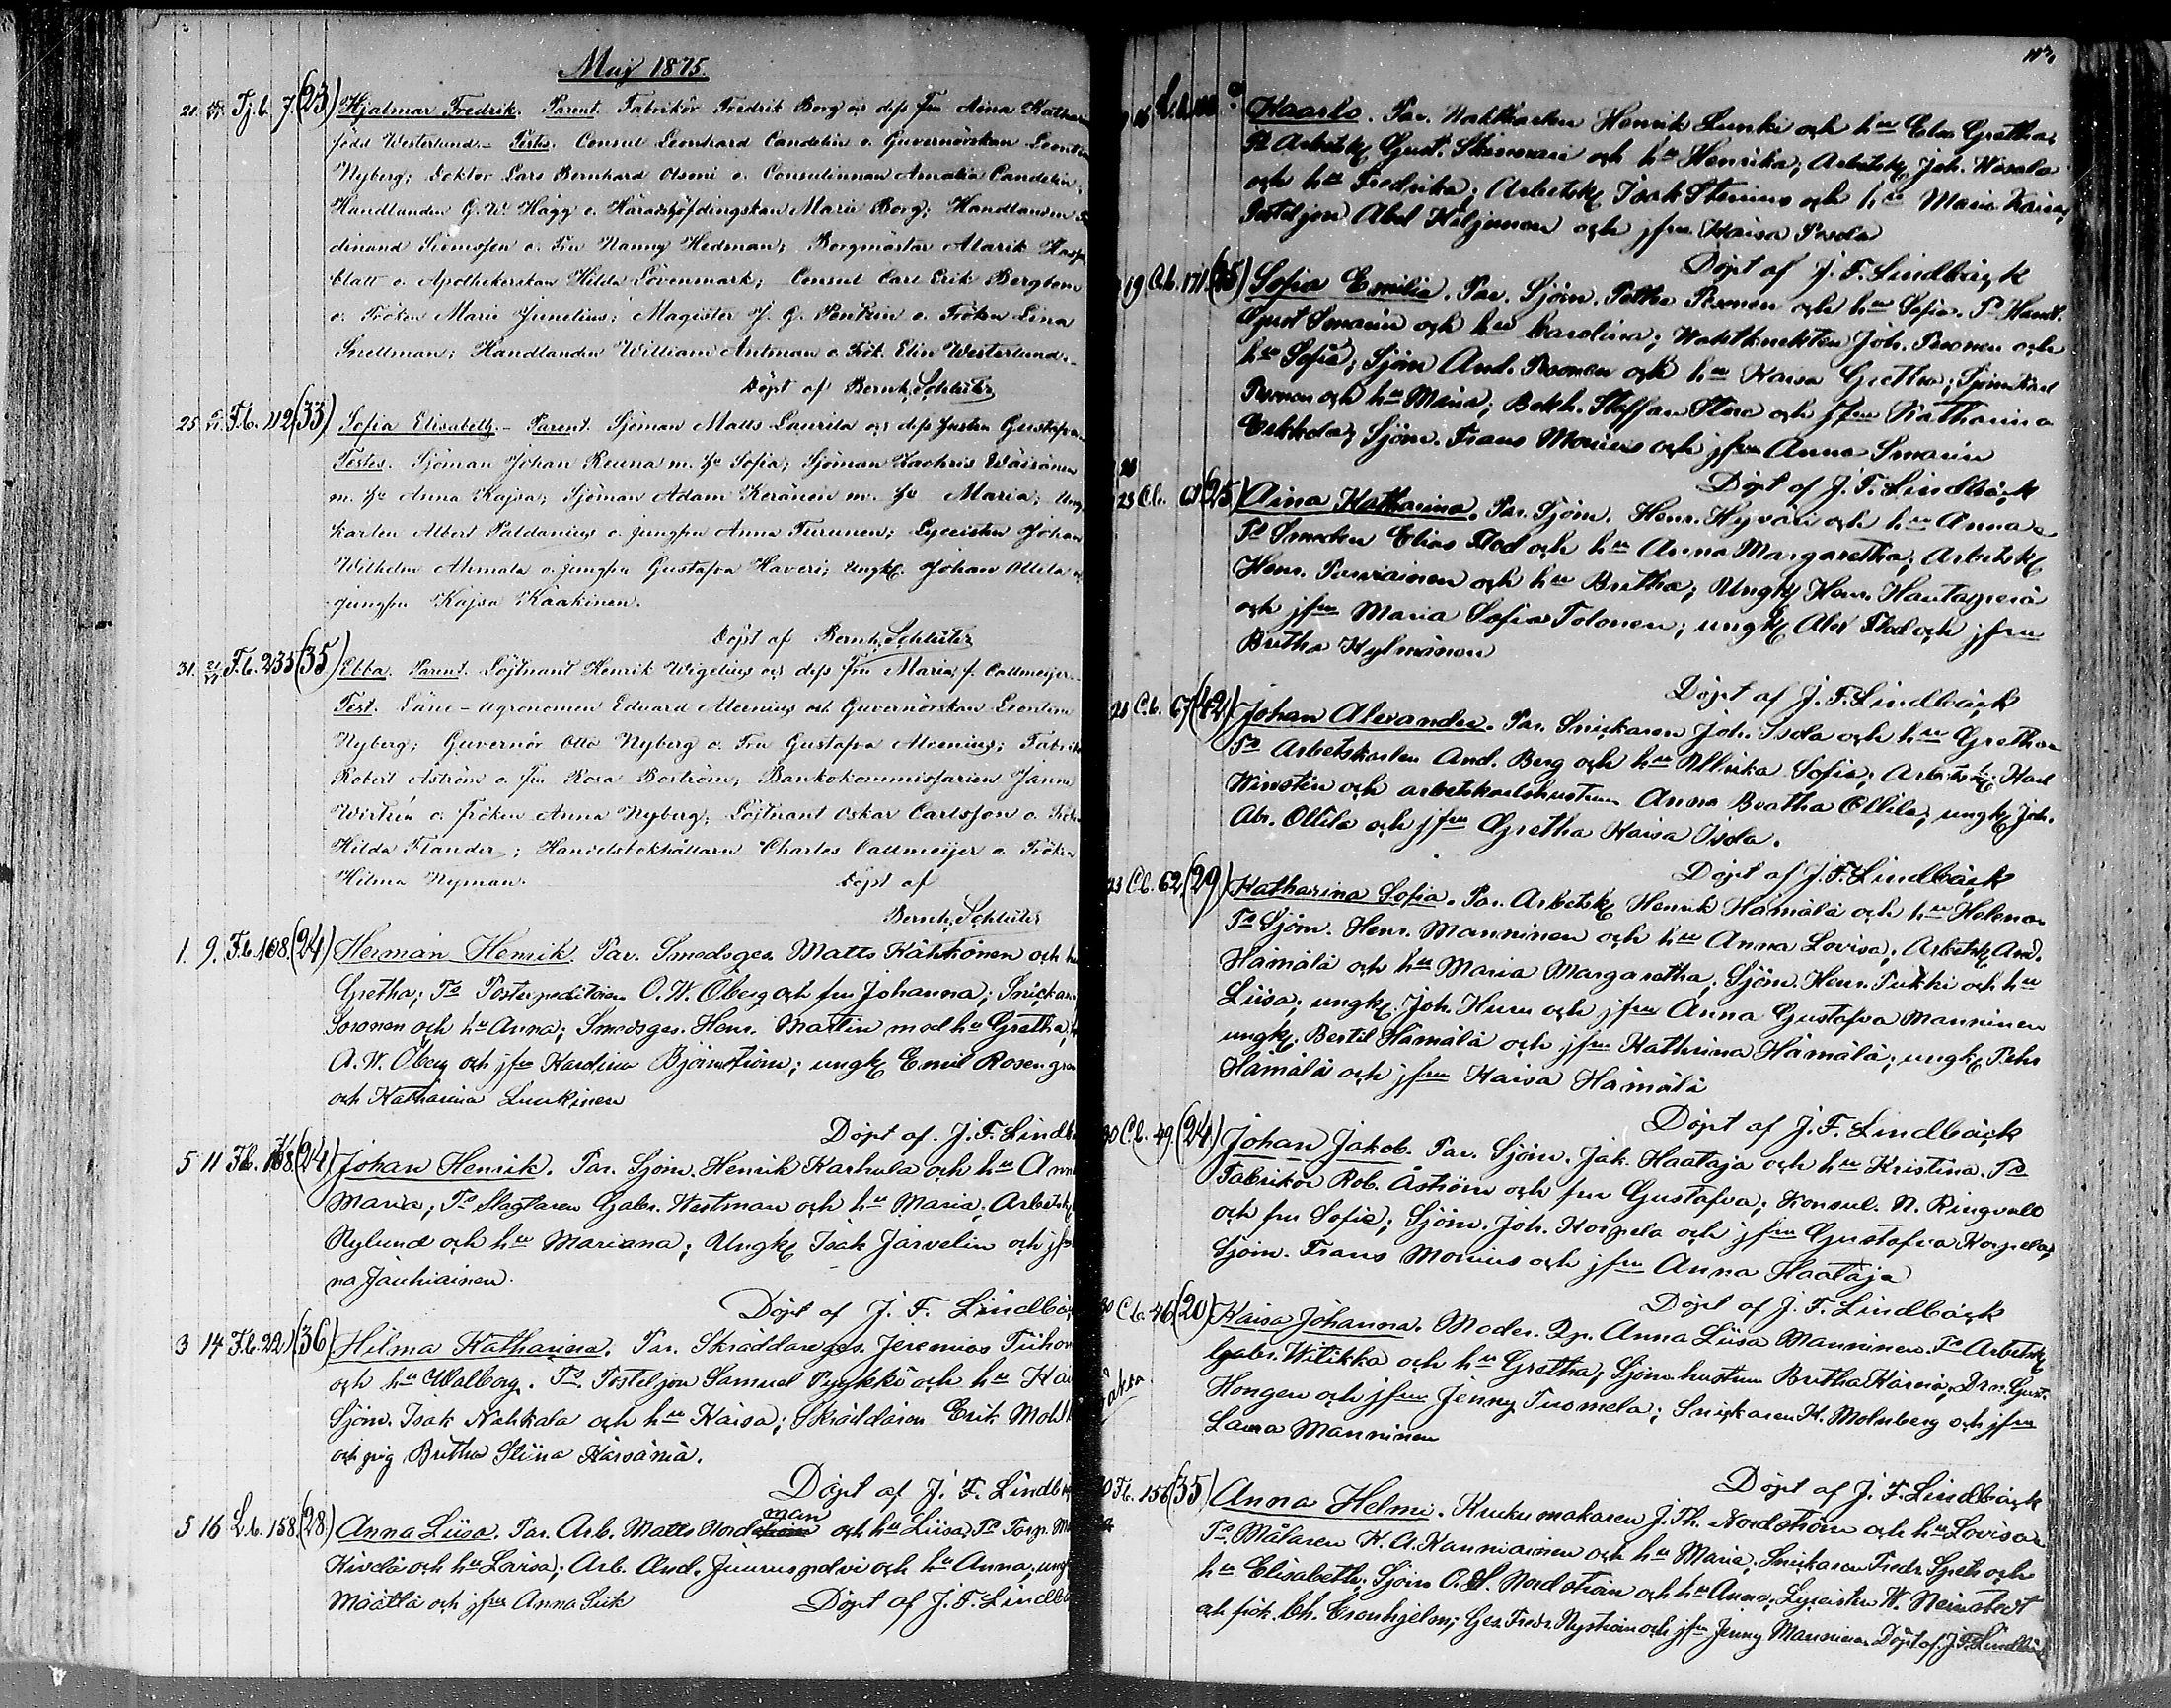 Maj 1875.
21. Tj.b. 7. (23) Hjalmar Fredrik. Parent. Fabrikör Fredrik Borg och dess fru Aina Katharina
född Westerlund. – Testes. Consul Leonhard Candelin o. Guvernörskan Leontine
Nyberg; Doktor Lars Bernhard Olsoni o. Consulinnan Amalia Candelin;
Handlanden G. W. Hägg o. Häradshöfdingskan Marie Borg; Handlanden
dinand Siemssen o. Fru Nanny Hedman; Borgmästar Alarik
blatt o. Apothekerskan Hilda Lövenmark; Consul Carl Erik Bergbom
o. Fröken Marie Junelius; Magister J. G. Pentzin o. Fröken Lina
Snellman; Handlanden William Antman o. Frök. Elin Westerlund.
Döpt af Bernh. Schlüter
25 F.b. 112 (33) Sofia Elisabeth. – Parent. Sjöman Matts Laurila och dess hustru Gustafva
Testes. Sjöman Johan Reuna m. hu Sofia; Sjöman Zachris Wäisänen
m. hu Anna Kajsa; Sjöman Adam Keränen m. hu Maria; Ung
karlen Albert Paldanius o. jungfru Anna Turunen; Lyceisten Johan
Wilhelm Ahmala o. jungfru Gustafva Haveri; ungk. Johan Ollila
jungfru Kajsa Kaakinen.
Döpt af Bernh. Schlüter
31. F.b. 235 (35) Ebba. Parent. Löjtnant Henrik Wigelius och dess fru Maria f. Callmeijer.
Test. Läne-agronomen Eduard Alcenius och Guvernörskan Leontine
Nyberg; Guvernör Otto Nyberg o. Fru Gustafva Alcenius; Fabrik
Robert Åström o. fru Rosa Boström; Bankokommissarien Janne
Wirtzén o. fröken Anna Nyberg; Löjtnant Oskar Carlsson o.
Hilda Flander; Handelsbokhållarn Charles Callmeijer o. Fröken
Hilma Nyman. Döpt af
Bernh. Schlüter
1. 9. F.b. 108. (24) Herman Henrik. Par. Smedsges. Matts Kähkönen och
Gretha; Ts Postexpeditören O. W. Öberg och fru Johanna; Snickar
Soronen och hu Anna; Smedsges. Henr. Martin med hu Gretha;
A. W. Öberg och jfru Karolina Björnström; ungk Emil Rosengren
och Katharina Luukinen
Döpt af. J. F. Lindb
5 11 F.b. 168. (24) Johan Henrik. Par. Sjöm. Henrik Karhula och hu Anna
Maria; Ts Slagtaren Gabr. Westman och hu Maria; Arbetsk
Nylund och hu Mariana; Ungk Isak Järvelin och jfr
na Jauhiainen.
Döpt af J. F. Lindbä
3 14 F.b. 221 (36) Hilma Katharina. Par. Skräddareges. Jeremias Tiiho
och hu Walborg. Ts. Posteljon Samuel Pyykkö och hu Ka
Sjöm. Isak Nahkala och hu Kaisa; Skräddaren Erik
och pig Britha Stiina Kärsämä.
Döpt af J. F. Lindb
5 16 L.b. 158. (28.) Anna Liisa. Par. Arb. Matts Nordman och hu Liisa, Ts Torp.
och hu Lovisa; Arb. And. Juuruspolvi och hu Anna; ung
Määttä och jfru Anna Siik Döpt af J. F. Lindb
Kaarlo. Par. Waktkarlen Henrik Lunki och hu Elsa Gretha;
Ts Arbetsk Gust. och hu Henrika; Arbetsk Joh.
och hu Fredrika; Arbetsk Isak Stenius och hu Maria Kaisa;
Posteljon Abel Kiljunen och jfru Kaisa
Döpt af J. F. Lindbäck
19 C.b. 171. (35) Sofia Emilia. Par. Sjöm. Petter Pesonen och hu Sofia. Ts Handl.
Gust Smarin och hu Carolina; Waktknekten Joh. Pesonen och
hu Sofia; Sjöm And. Pesonen och hu Kaisa Gretha; Sjöm Karl
Pesonen och hu Maria; Bokh. Staffan och jfru Katharina
; Sjöm. Frans Monius och jfru Anna Smarin
Döpt af J. F. Lindbäck
23 C.b. 61 (25) Aina Katharina. Par. Sjöm. Henr. Hyväri och hu Anna
Ts Smeden Elias Flod och hu Anna Margaretha; Arbetsk
Henr. Purviainen och hu Britha; Ungk Henr. Hautajärvi
och jfru Maria Sofia Tolonen; ungk Alex Flod och jfru
Britha Kylmänen
Döpt af J. F. Lindbäck
28 C.b. 67 (42) Johan Alexander. Par. Snickaren Joh. Isola och hu Gretha
Ts Arbetskarlen And. Berg och hu Ullrika Sofia; Arbetsk Karl
Winstén och arbetskarlshustrun Anna Beatha Ollila; ungk Joh.
Abr. Ollila och jfru Gretha Kaisa Isola.
Döpt af J. F. Lindbäck
23 C.b. 62 (29) Katharina Sofia. Par. Arbetsk Henrik Hämälä och hu Helena
Ts Sjöm. Henr. Manninen och hu Anna Lovisa; Arbetsk And.
Hämälä och hu Maria Margaretha; Sjöm. Henr. Tukki och hu
Liisa; ungk. Joh. Huru och jfru Anna Gustafva Manninen
ungk. Bertil Hämälä och jfru Kathrina Hämälä; ungk Pehr
Hämälä och jfru Kaisa Hämälä
Döpt af J. F. Lindbäck
30 C.b. 49. (24) Johan Jakob. Par. Sjöm. Jak. Haataja och hu Kristina. Ts
Fabrikör Rob. Åström och fru Gustafva; Konsul. N. Ringvall
och fru Sofie; Sjöm. Joh. Korpela och jfru Gustafva Korpela;
Sjöm. Frans Monius och jfru Anna Haataja
Döpt af J. F. Lindbäck
30 C.b. 46 (20) Kaisa Johanna. Moder. Qp. Anna Liisa Manninen. Ts Arbetsk
Gabr. Witikka och hu Gretha; Sjöm hustrun Britha Kärnä; Drn. Gust.
Hongen och jfru Jenny Tuomela; Snickaren K. Molnberg och jfru
Laura Manninen
Döpt af J. F. Lindbäck
F.b. 156 (35) Anna Helmi. Krukmakaren J. Th. Nordström och hu Lovisa
Ts. Målaren K. A. Kanniainen och hu Maria; Snickaren Fredr. Speth och
hu Elisabeth; Sjöm O. A. Nordström och hu Anna; Lyceisten W. Neimstedt
och frök. Ch. Cronhjelm; Ges. Fredr. Nyström och jfru Jenny Manninen. Döpt af J. F. Lindbäck